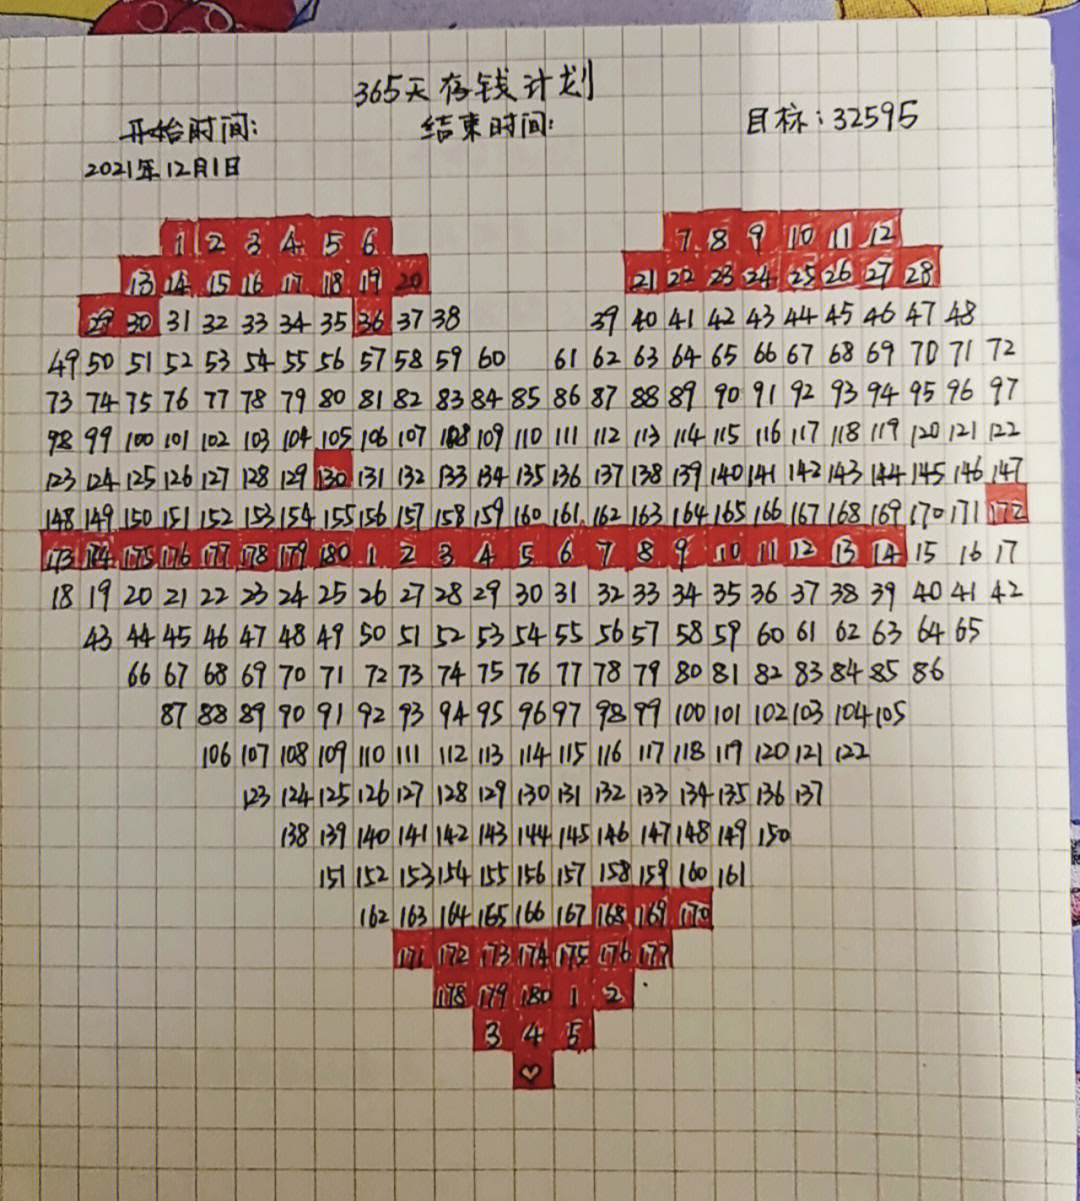 365天存钱计划
开始时间: 结束时间: 目标:32595
2021年12月1日
1 2 3 4 5 6 7 8 9 10 11 12
13 14 15 16 17 18 19 20 21 22 23 24 25 26 27 28
29 30 31 32 33 34 35 36 37 38 39 40 41 42 43 44 45 46 47 48
49 50 51 52 53 54 55 56 57 58 59 60 61 62 63 64 65 66 67 68 69 70 71 72
73 74 75 76 77 78 79 80 81 82 83 84 85 86 87 88 89 90 91 92 93 94 95 96 97
98 99 100 101 102 103 104 105 106 107 108 109 110 111 112 113 114 115 116 117 118 119 120 121 122
123 124 125 126 127 128 129 130 131 132 133 134 135 136 137 138 139 140 141 142 143 144 145 146 147
148 149 150 151 152 153 154 155 156 157 158 159 160 161 162 163 164 165 166 167 168 169 170 171 172
173 174 175 176 177 178 179 180 1 2 3 4 5 6 7 8 9 10 11 12 13 14 15 16 17
18 19 20 21 22 23 24 25 26 27 28 29 30 31 32 33 34 35 36 37 38 39 40 41 42
43 44 45 46 47 48 49 50 51 52 53 54 55 56 57 58 59 60 61 62 63 64 65
66 67 68 69 70 71 72 73 74 75 76 77 78 79 80 81 82 83 84 85 86
87 88 89 90 91 92 93 94 95 96 97 98 99 100 101 102 103 104 105
106 107 108 109 110 111 112 113 114 115 116 117 118 119 120 121 122
123 124 125 126 127 128 129 130 131 132 133 134 135 136 137
138 139 140 141 142 143 144 145 146 147 148 149 150
151 152 153 154 155 156 157 158 159 160 161
162 163 164 165 166 167 168 169 170
171 172 173 174 175 176 177
178 179 180 1 2
3 4 5